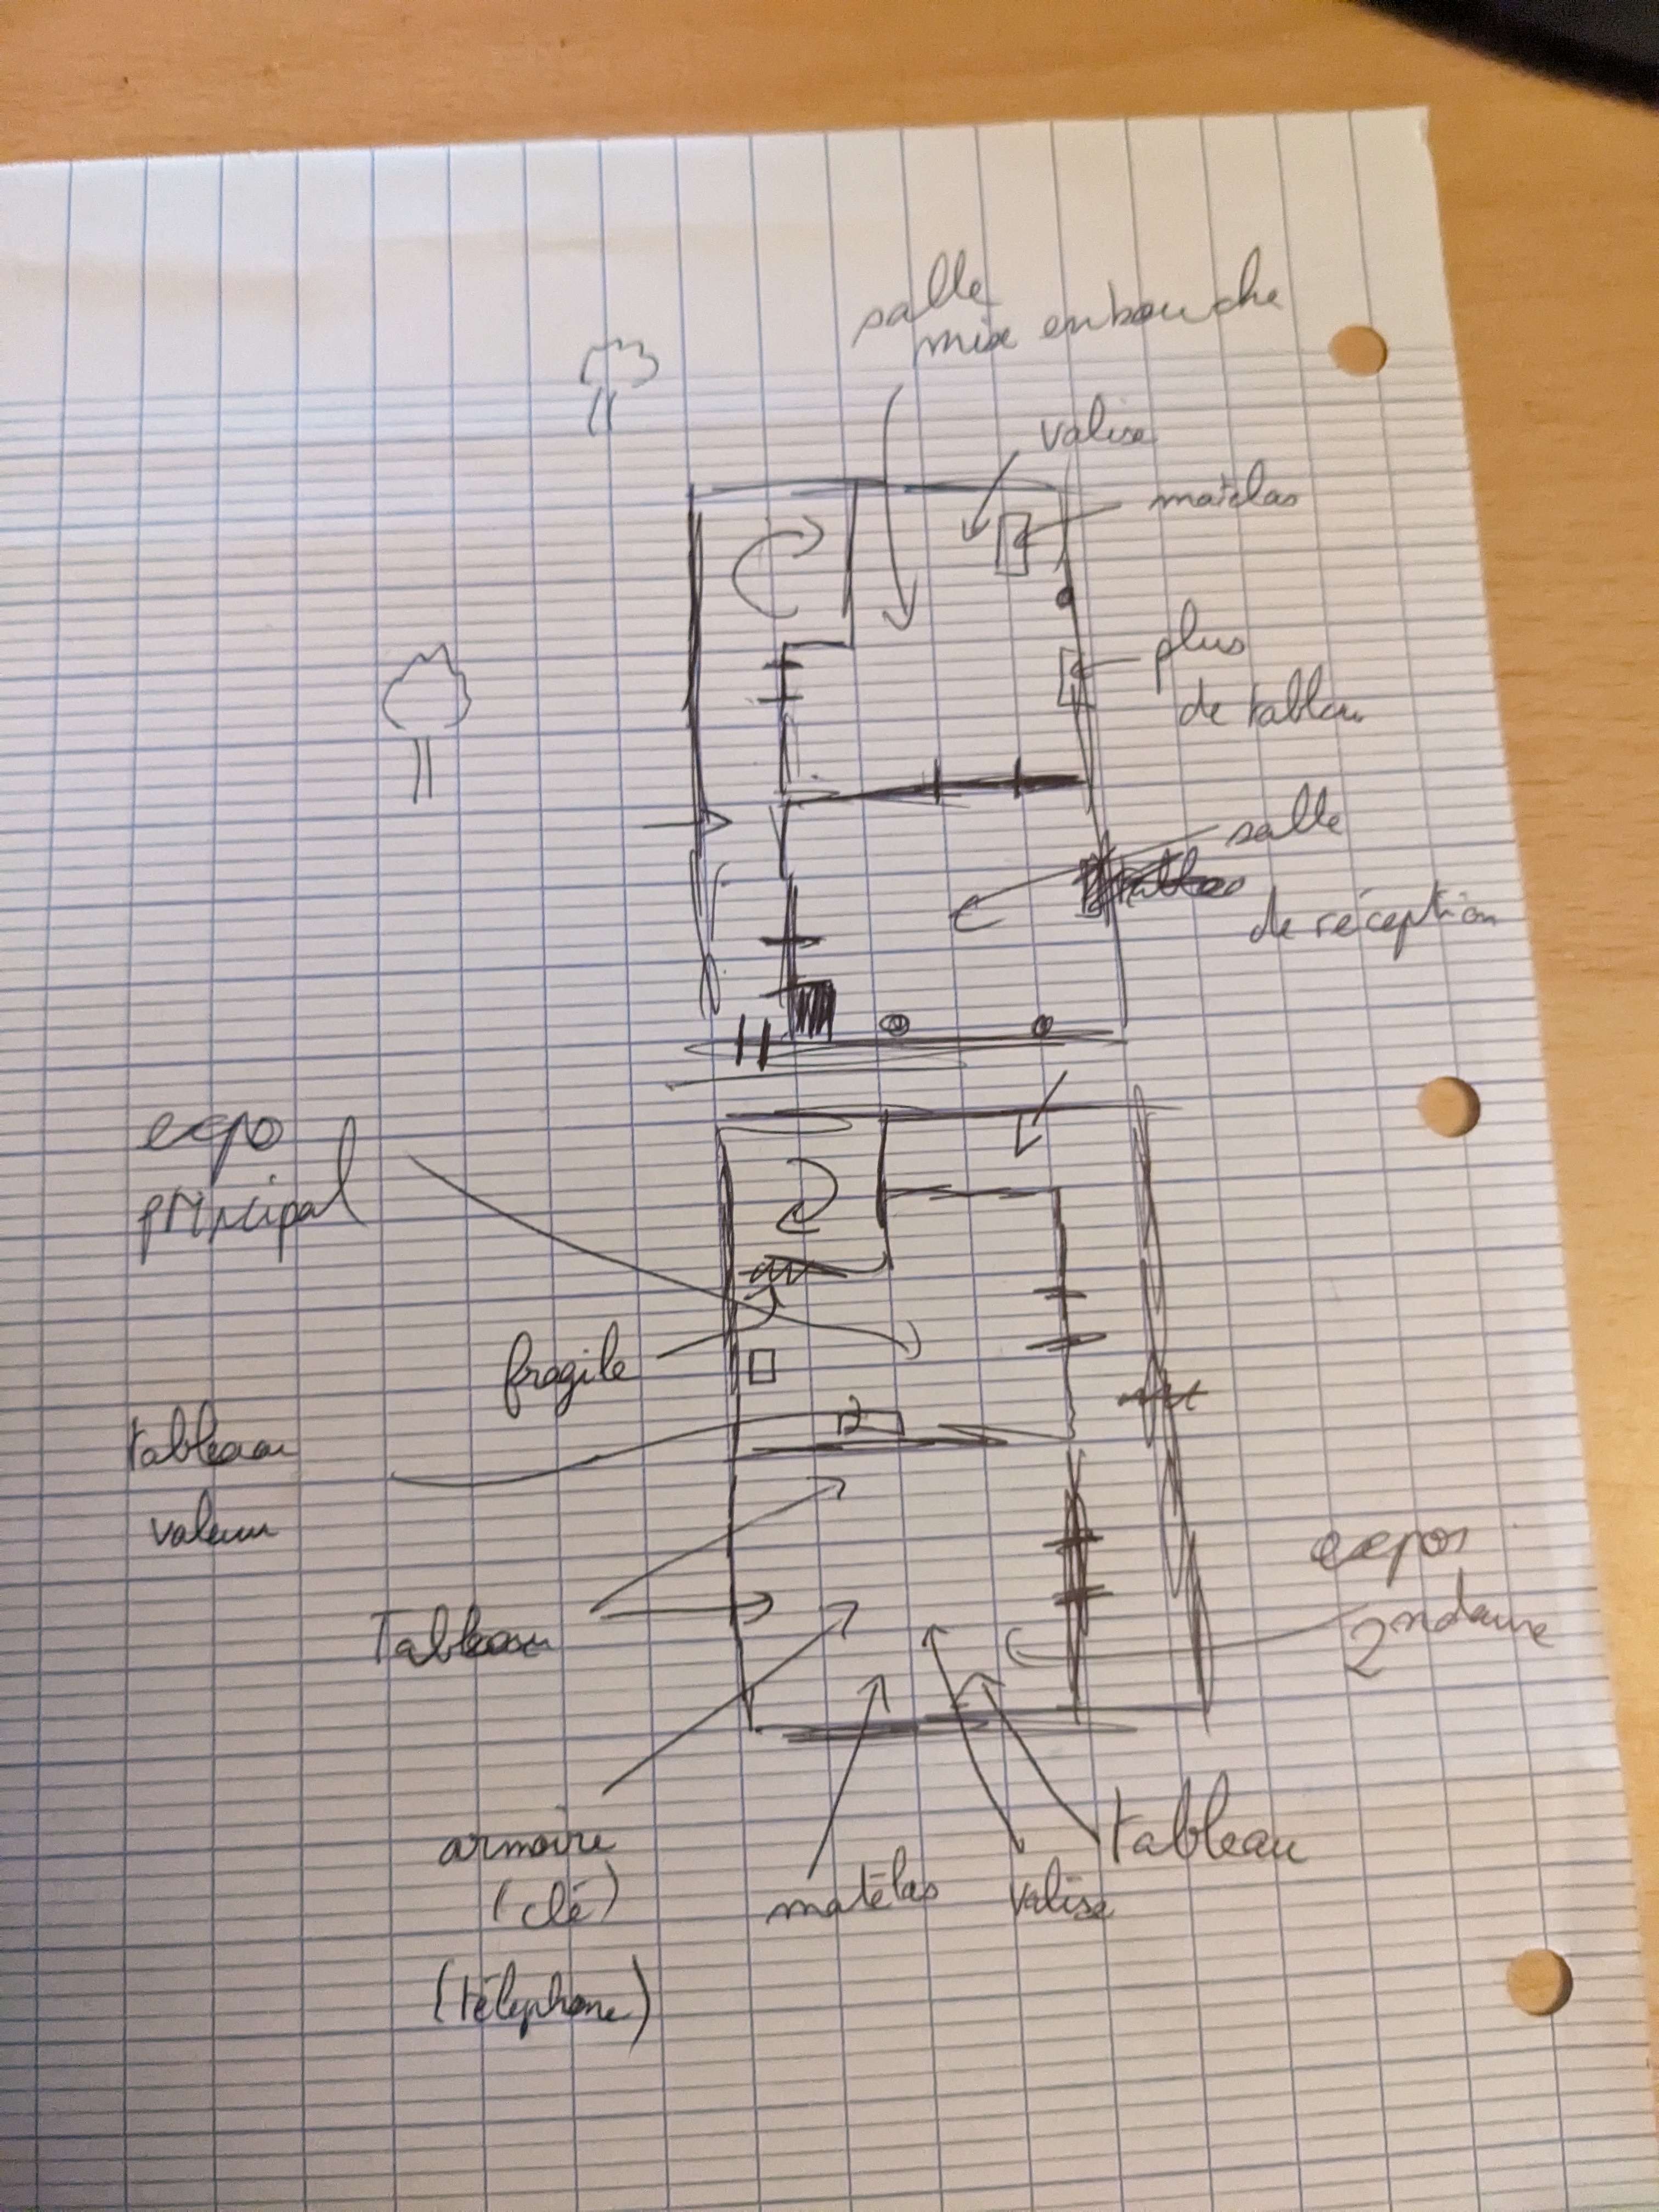 salle
mise en bouche
valise
matelas
plus
de tableau
salle
de réception
expo
principal
fragile
tableau
valeur
Tableau
expos
2ndaire
armoire
(clé)
(téléphone)
matelas
valise
tableau